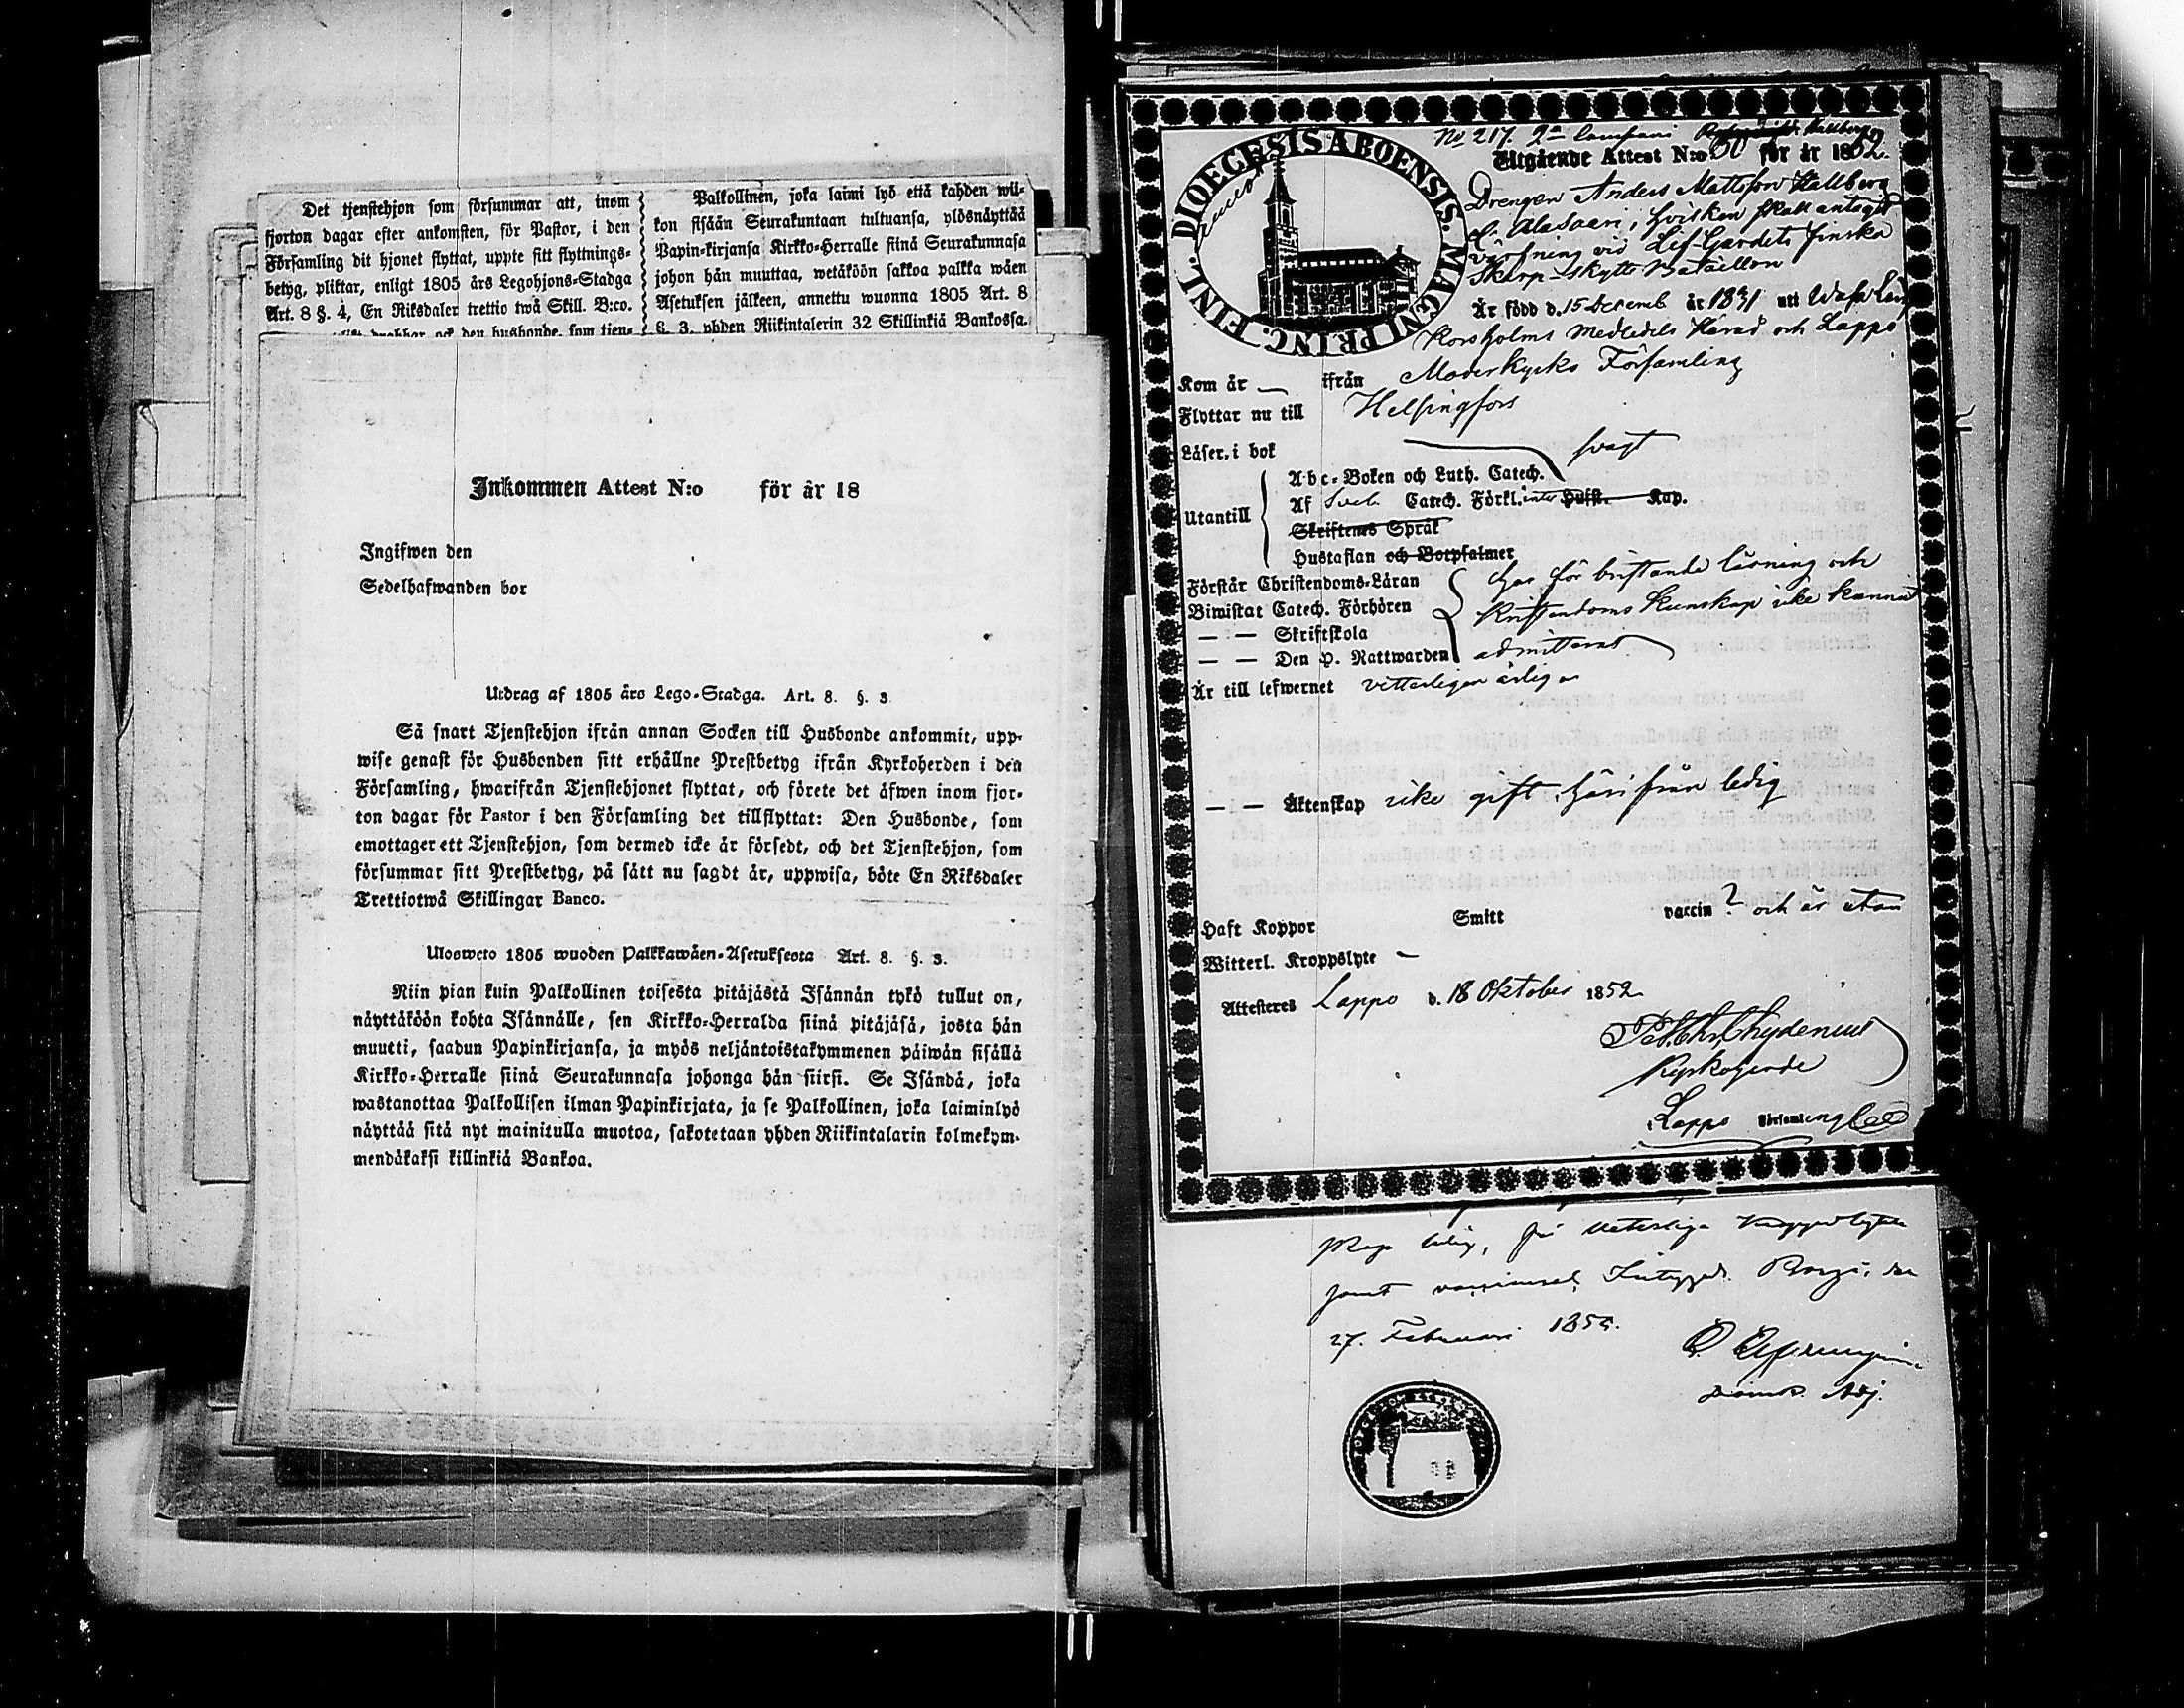 Det tjenstehjon som försummar att, inom
fjorton dagar efter ankomsten, för Pastor, i den
Församling dit hjonet flyttat, uppte sitt flyttnings-
betyg, pliktar, enligt 1805 års Legohjons-Stadga
Art. 8 §. 4, En Riksdaler trettio twå Skill. B:co.
Palkollinen, joka laimi lyö että kahden wii-
kon sisään Seurakuntaan tultuansa, ylösnäyttää
Papin-kirjansa Kirkko-Herralle siinä Seurakunnasa
johon hän muuttaa, wetäköön sakkoa palkka wäen
Asetuksen jälkeen, annettu wuonna 1805 Art. 8
§. 3. yhden Riikintalerin 32 Skillinkiä Bankossa.
Inkommen Attest N:o för år 18
Ingifwen den
Sedelhafwanden bor
Utdrag af 1805 års Lego-Stadga. Art. 8. §. 3
Så snart Tjenstehjon ifrån annan Socken till Husbonde ankommit, upp-
wise genast för Husbonden sitt erhållne Prestbetyg ifrån Kyrkoherden i den
Församling, hwarifrån Tjenstehjonet flyttat, och förete det äfwen inom fjor-
ton dagar för Pastor i den Församling det tillflyttat: Den Husbonde, som
emottager ett Tjenstehjon, som dermed icke är försedt, och det Tjenstehjon, som
försummar sitt Prestbetyg, på sätt nu sagdt är, uppwisa, böte En Riksdaler
Trettiotwå Skillingar Banco.
Ulosweto 1805 wuoden Palkkawäen-Asetuksesta Art. 8. §. 3.
Niin pian kuin Palkollinen toisesta pitäjästä Isännän tykö tullut on,
näyttäköön kohta Isännälle, sen Kirkko-Herralda siinä pitäjäsä, josta hän
muutti, saadun Papinkirjansa, ja myös neljäntoistakymmenen päiwän sisällä
Kirkko-Herralle siinä Seurakunnasa johonga hän siirsi. Se Isändä, joka
wastanottaa Palkollisen ilman Papinkirjata, ja se Palkollinen, joka laiminlyö
näyttää sitä nyt mainitulla muotoa, sakotetaan yhden Riikintalarin kolmekym-
mendäkaksi killinkiä Bankoa.
DIOECESIS ABOENSIS. MAGNI PRINC. FINL.
No 217. 2a Compani
Utgående Attest N:o 50 för år 1852.
Drengen Anders Mattsson Hallberg
Alasaari, hvilken skall antagas
värfning vid Lif-Gardets finska
Skarp-skytte Bataillon
Är född d. 15 Decemb år 1831 uti Wasa Län
Korsholms Medledels Härad och Lappo
Moderkyrko Församling
Kom år — ifrån
Flyttar nu till Helsingfors
Läser, i bok svagt
Utantill
A-b-c-Boken och Luth. Catech.
Af Sveb. Catech. Förkl. inter Hufst. Kap.
Skriftenes Språk
Hustaflan och Botpsalmer
Förstår Christendoms-Läran
Biwistat Catech. Förhören
— — Skriftskola
— — Den H. Nattwarden
har för bristande läsning och
Kristendoms Kunskap icke kunnat
admitteras
Är till lefwernet vitterligen ärlig
— — Äktenskap icke gift, härifrån ledig
Haft Koppor Smitt vaccin ? och är utan
Witterl. Kroppslyte —
Attesteres Lappo d. 18 Oktober 1852
Pet. Chr. Chydenius
Kyrkoherde
Lappo Församling
27. Februari